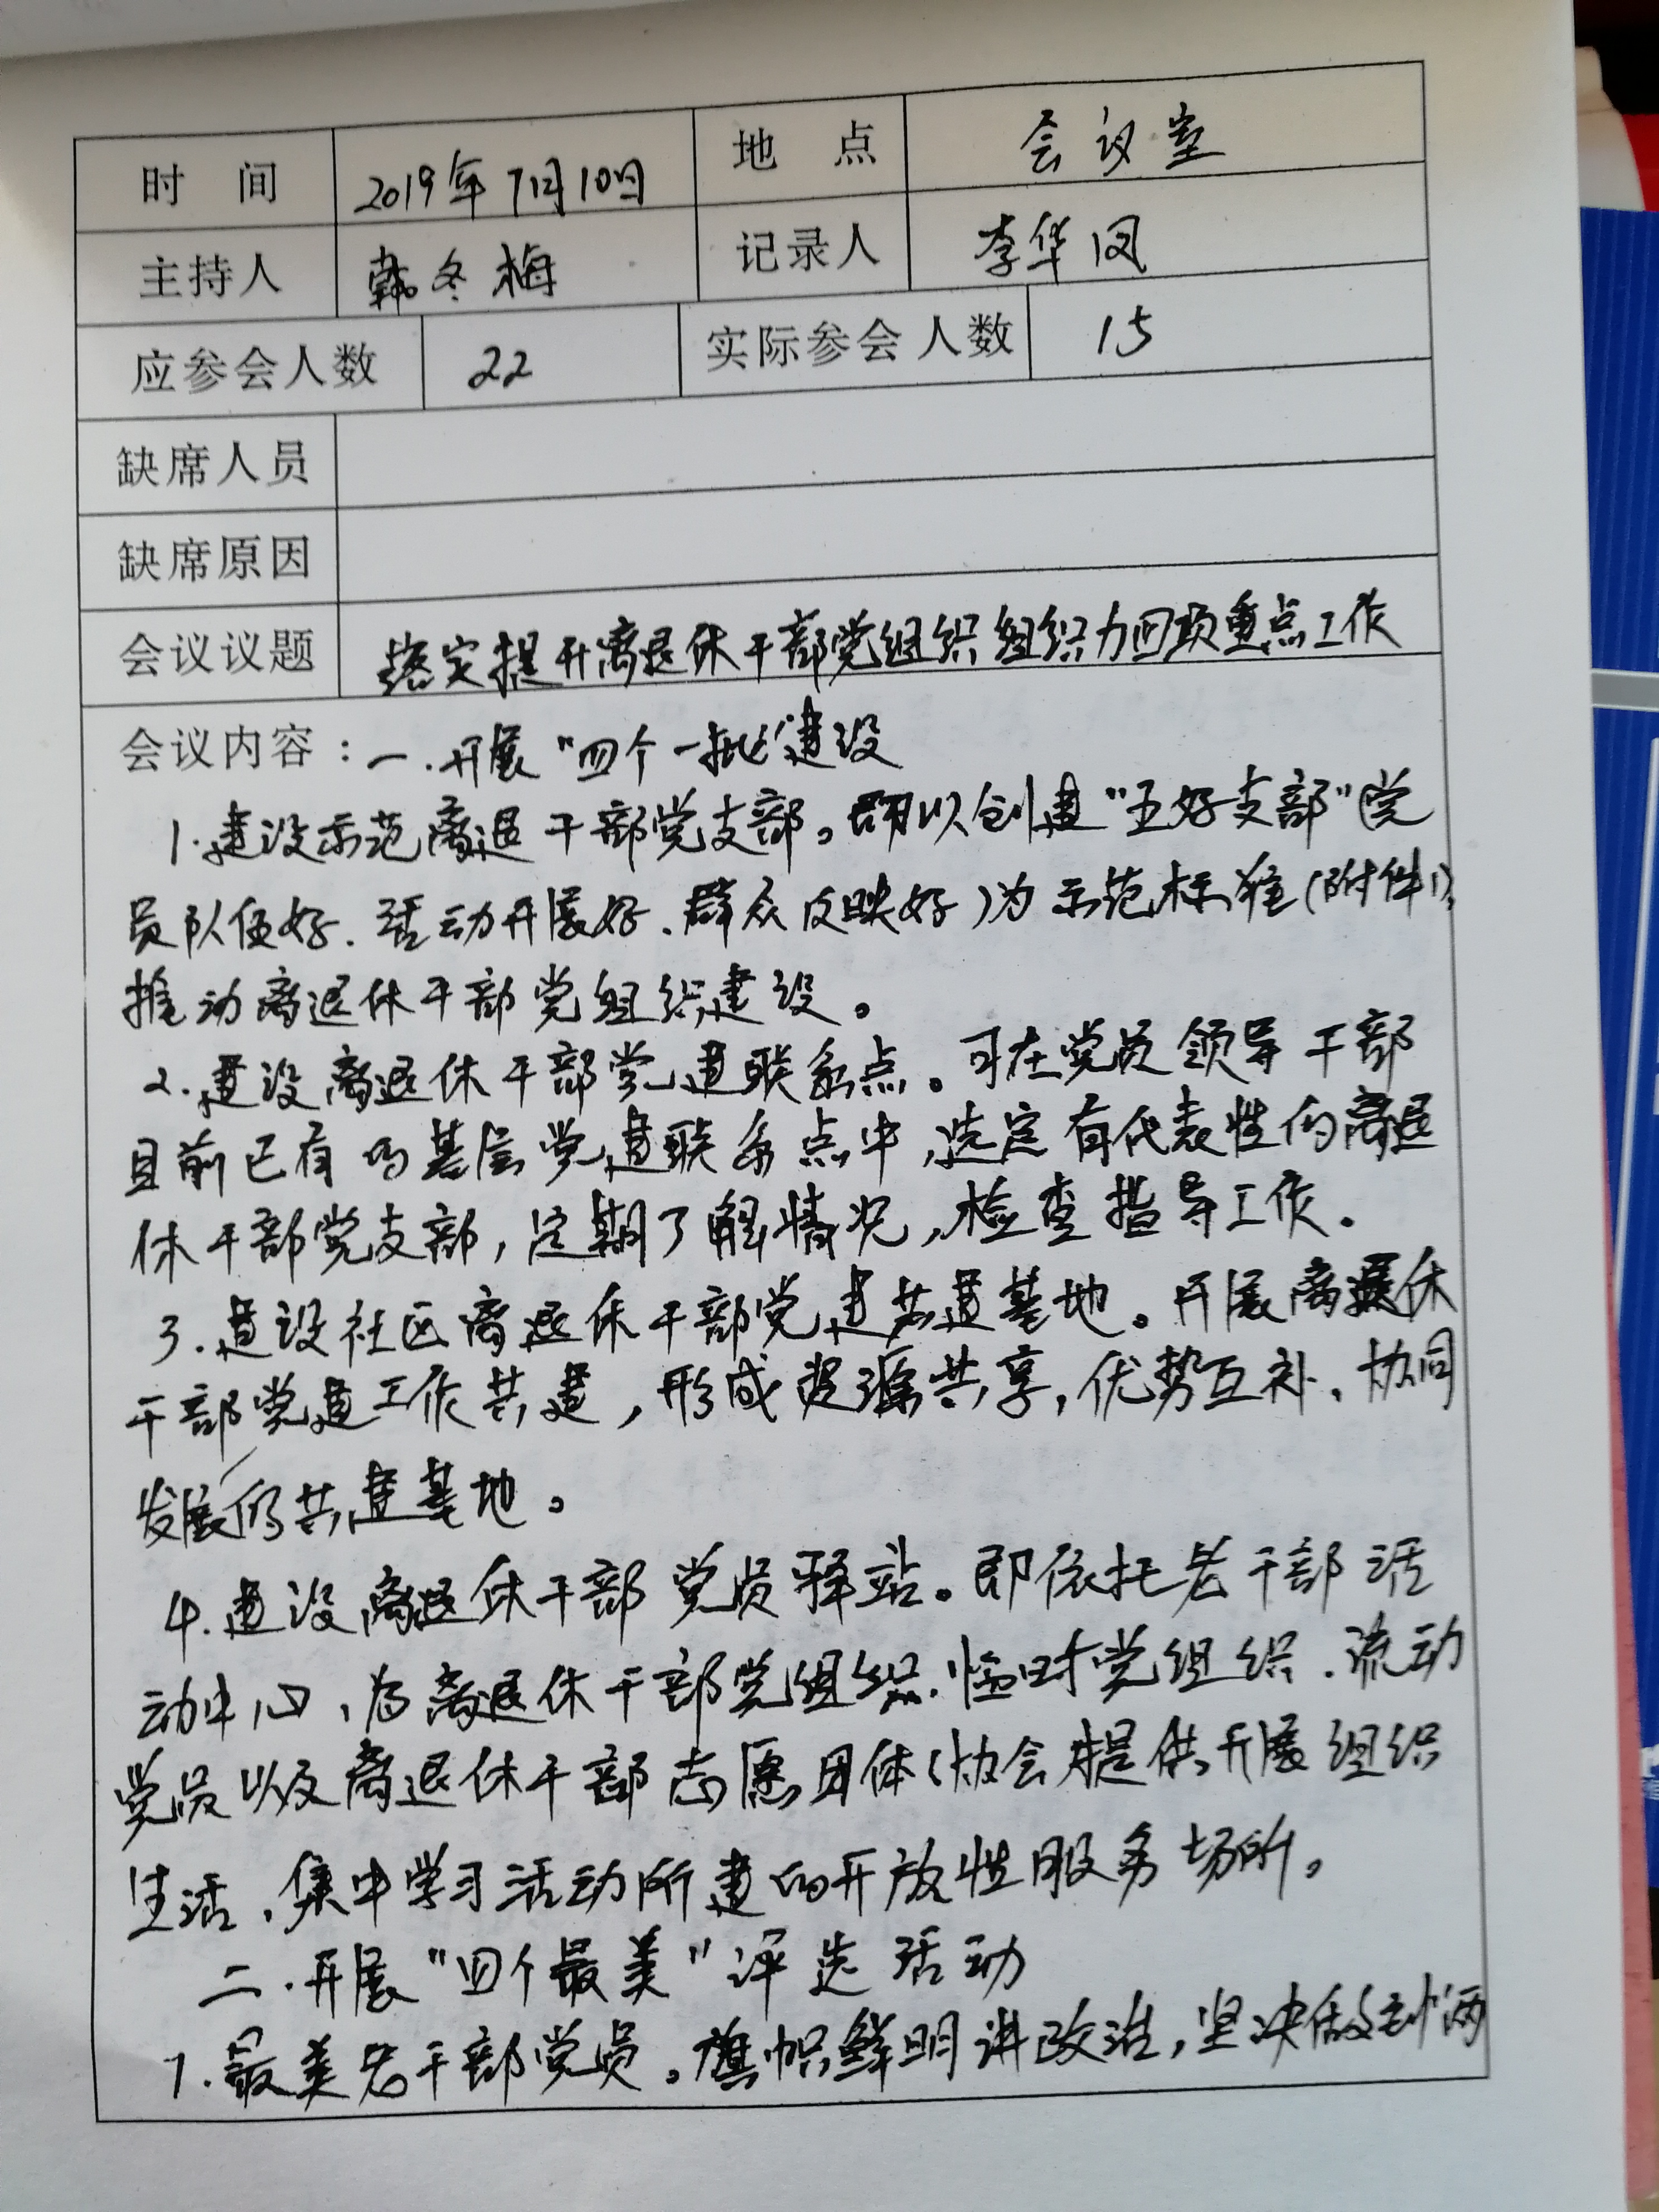 时 间 2019年7月10日 地 点 会议室
主持人 韩冬梅 记录人 李华凤
应参会人数 22 实际参会人数 15
缺席人员
缺席原因
会议议题 落实提升离退休干部党组织组织力四项重点工作
会议内容：一.开展“四个一批”建设
1.建设示范离退干部党支部。即以创建“五好支部”(党
员队伍好.活动开展好.群众反映好)为示范标准(附件1),
推动离退休干部党组织建设。
2.建设离退休干部党建联系点。可在党员领导干部
目前已有的基层党建联系点中,选定有代表性的离退
休干部党支部,定期了解情况,检查指导工作。
3.建设社区离退休干部党建共建基地。开展离退休
干部党建工作共建,形成资源共享,优势互补、协同
发展的共建基地。
4.建设离退休干部党员驿站。即依托老干部活
动中心、为离退休干部党组织.临时党组织.流动
党员以及离退休干部志愿团体(协会)提供开展组织
生活、集中学习活动所建的开放性服务场所。
二.开展“四个最美”评选活动
1.最美老干部党员。旗帜鲜明讲政治,坚决做到“两